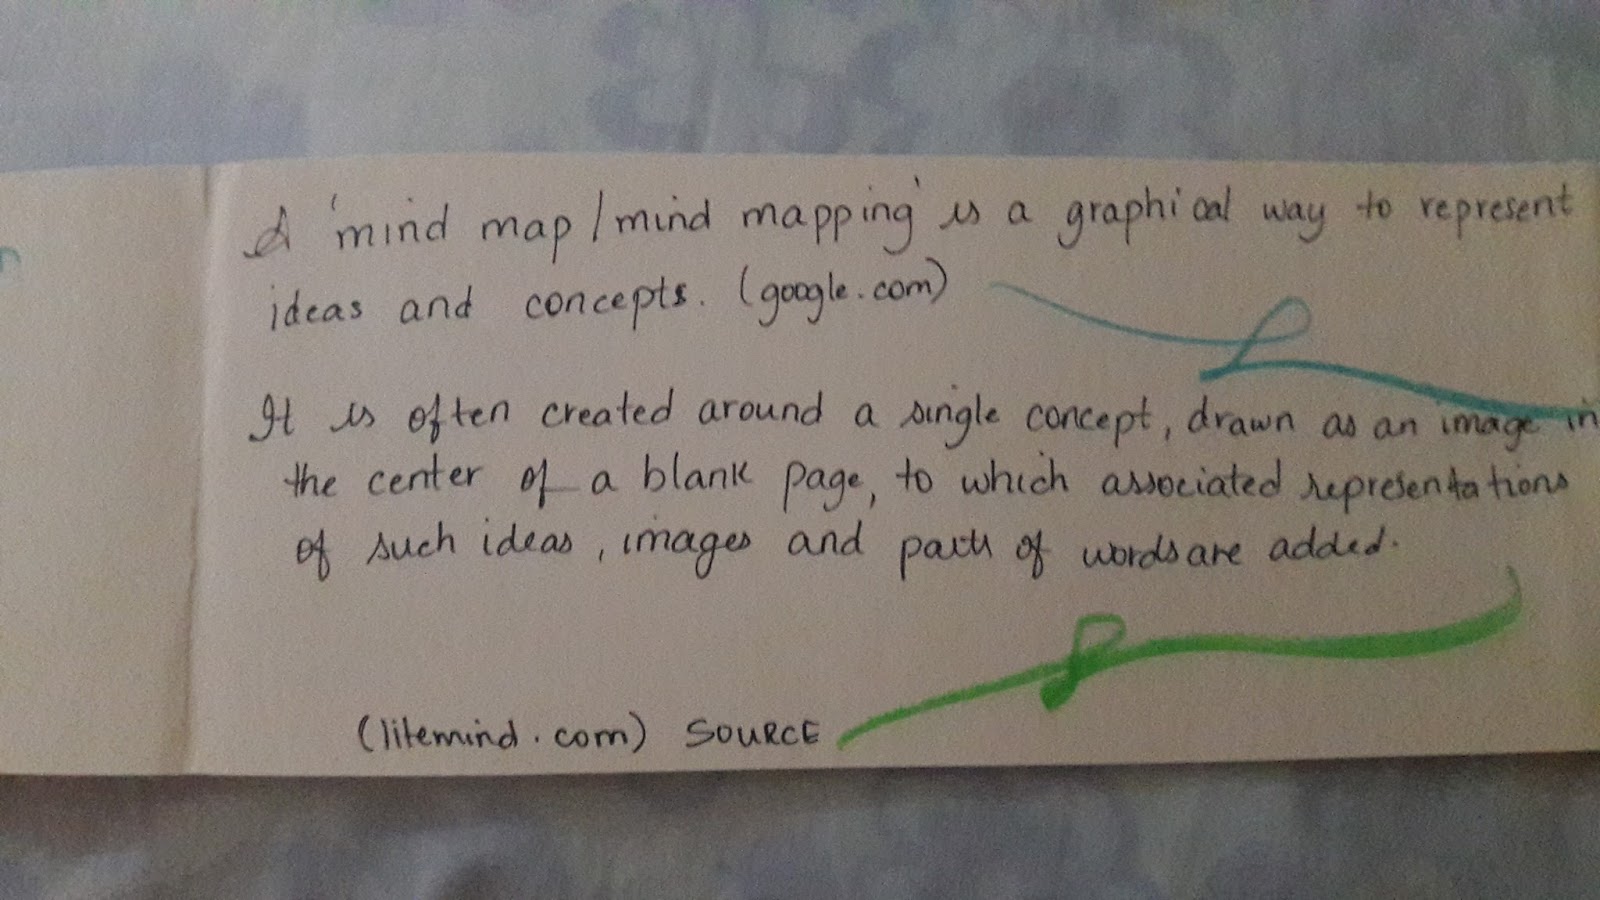 A 'mind map/mind mapping' is a graphical way to represent
ideas and concepts. (google.com)
It is often created around a single concept, drawn as an image in
the center of a blank page, to which associated representations
of such ideas, images and of words are added.
(litemind.com) SOURCE